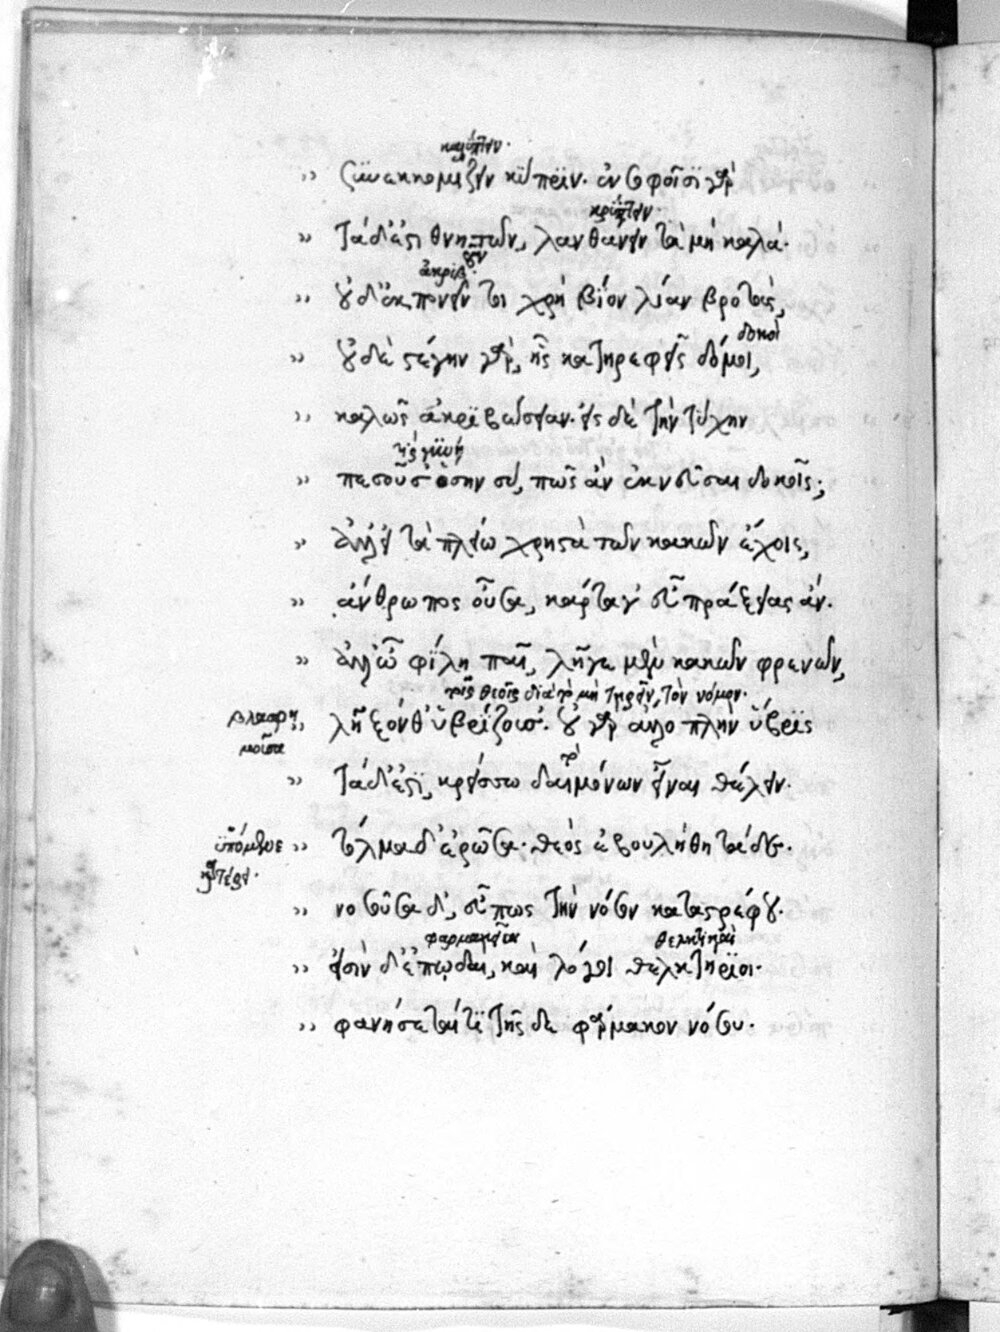 καλύπτειν·
συνεκκομίζειν κύπριν· ἐν σοφοῖσι γὰρ
κρύπτειν·
τάδ' ἐστι θνητῶν, λανθάνειν τὰ μὴ καλά·
ἀκριβοῦν·
οὐδ' ἐκπονεῖν τι χρὴ βίον λίαν βροτοὺς,
δοκοὶ
οὐδὲ στέγην γὰρ, ἧς κατηρεφεῖς δόμοι,
καλῶς ἀκριβώσειαν· εἰς δὲ τὴν τύχην
πεσοῦσ' ὅσην σὺ, πῶς ἂν ἐκνεῦσαι δοκεῖς;
ἀλλ' εἰ τὰ πλείω χρηστὰ τῶν κακῶν ἔχοις,
ἄνθρωπος οὖσα, κάρτα γ' εὖ πράξειας ἄν.
ἀλλ' ὦ φίλη παῖ, λῆγε μὲν κακῶν φρενῶν,
τοῖς θεοῖς διὰ τὸ μὴ τηρεῖν τὸν νόμον·
βλασφη λῆξον θ' ὑβρίζουσ'· οὐ γὰρ ἄλλο πλὴν ὕβρις
μοῦσα
τάδ' ἐστὶ, κρείσσω δαιμόνων εἶναι θέλειν·
ὑπόμεινε τόλμα δ' ἐρῶσα· θεὸς ἐβουλήθη τάδε·
καρτέρει·
νοσοῦσα δ', εὖ πως τὴν νόσον καταστρέφου·
φαρμακεῖαι θελκτικοὶ
εἰσὶν δ' ἐπῳδαὶ, καὶ λόγοι θελκτήριοι·
φανήσεταί τι τῆς δε φάρμακον νόσου·